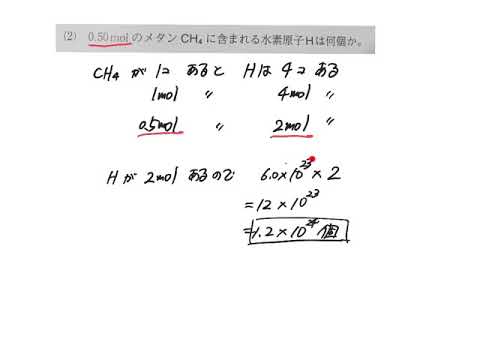 (2) 0.50molのメタンCH₄に含まれる水素原子Hは何個か。
CH₄ が 1コ あると Hは 4コある
1mol 〃 4mol 〃
0.5mol 〃 2mol 〃
Hが 2mol あるので 6.0×10²³×2
=12×10²³
=1.2×10²⁴個